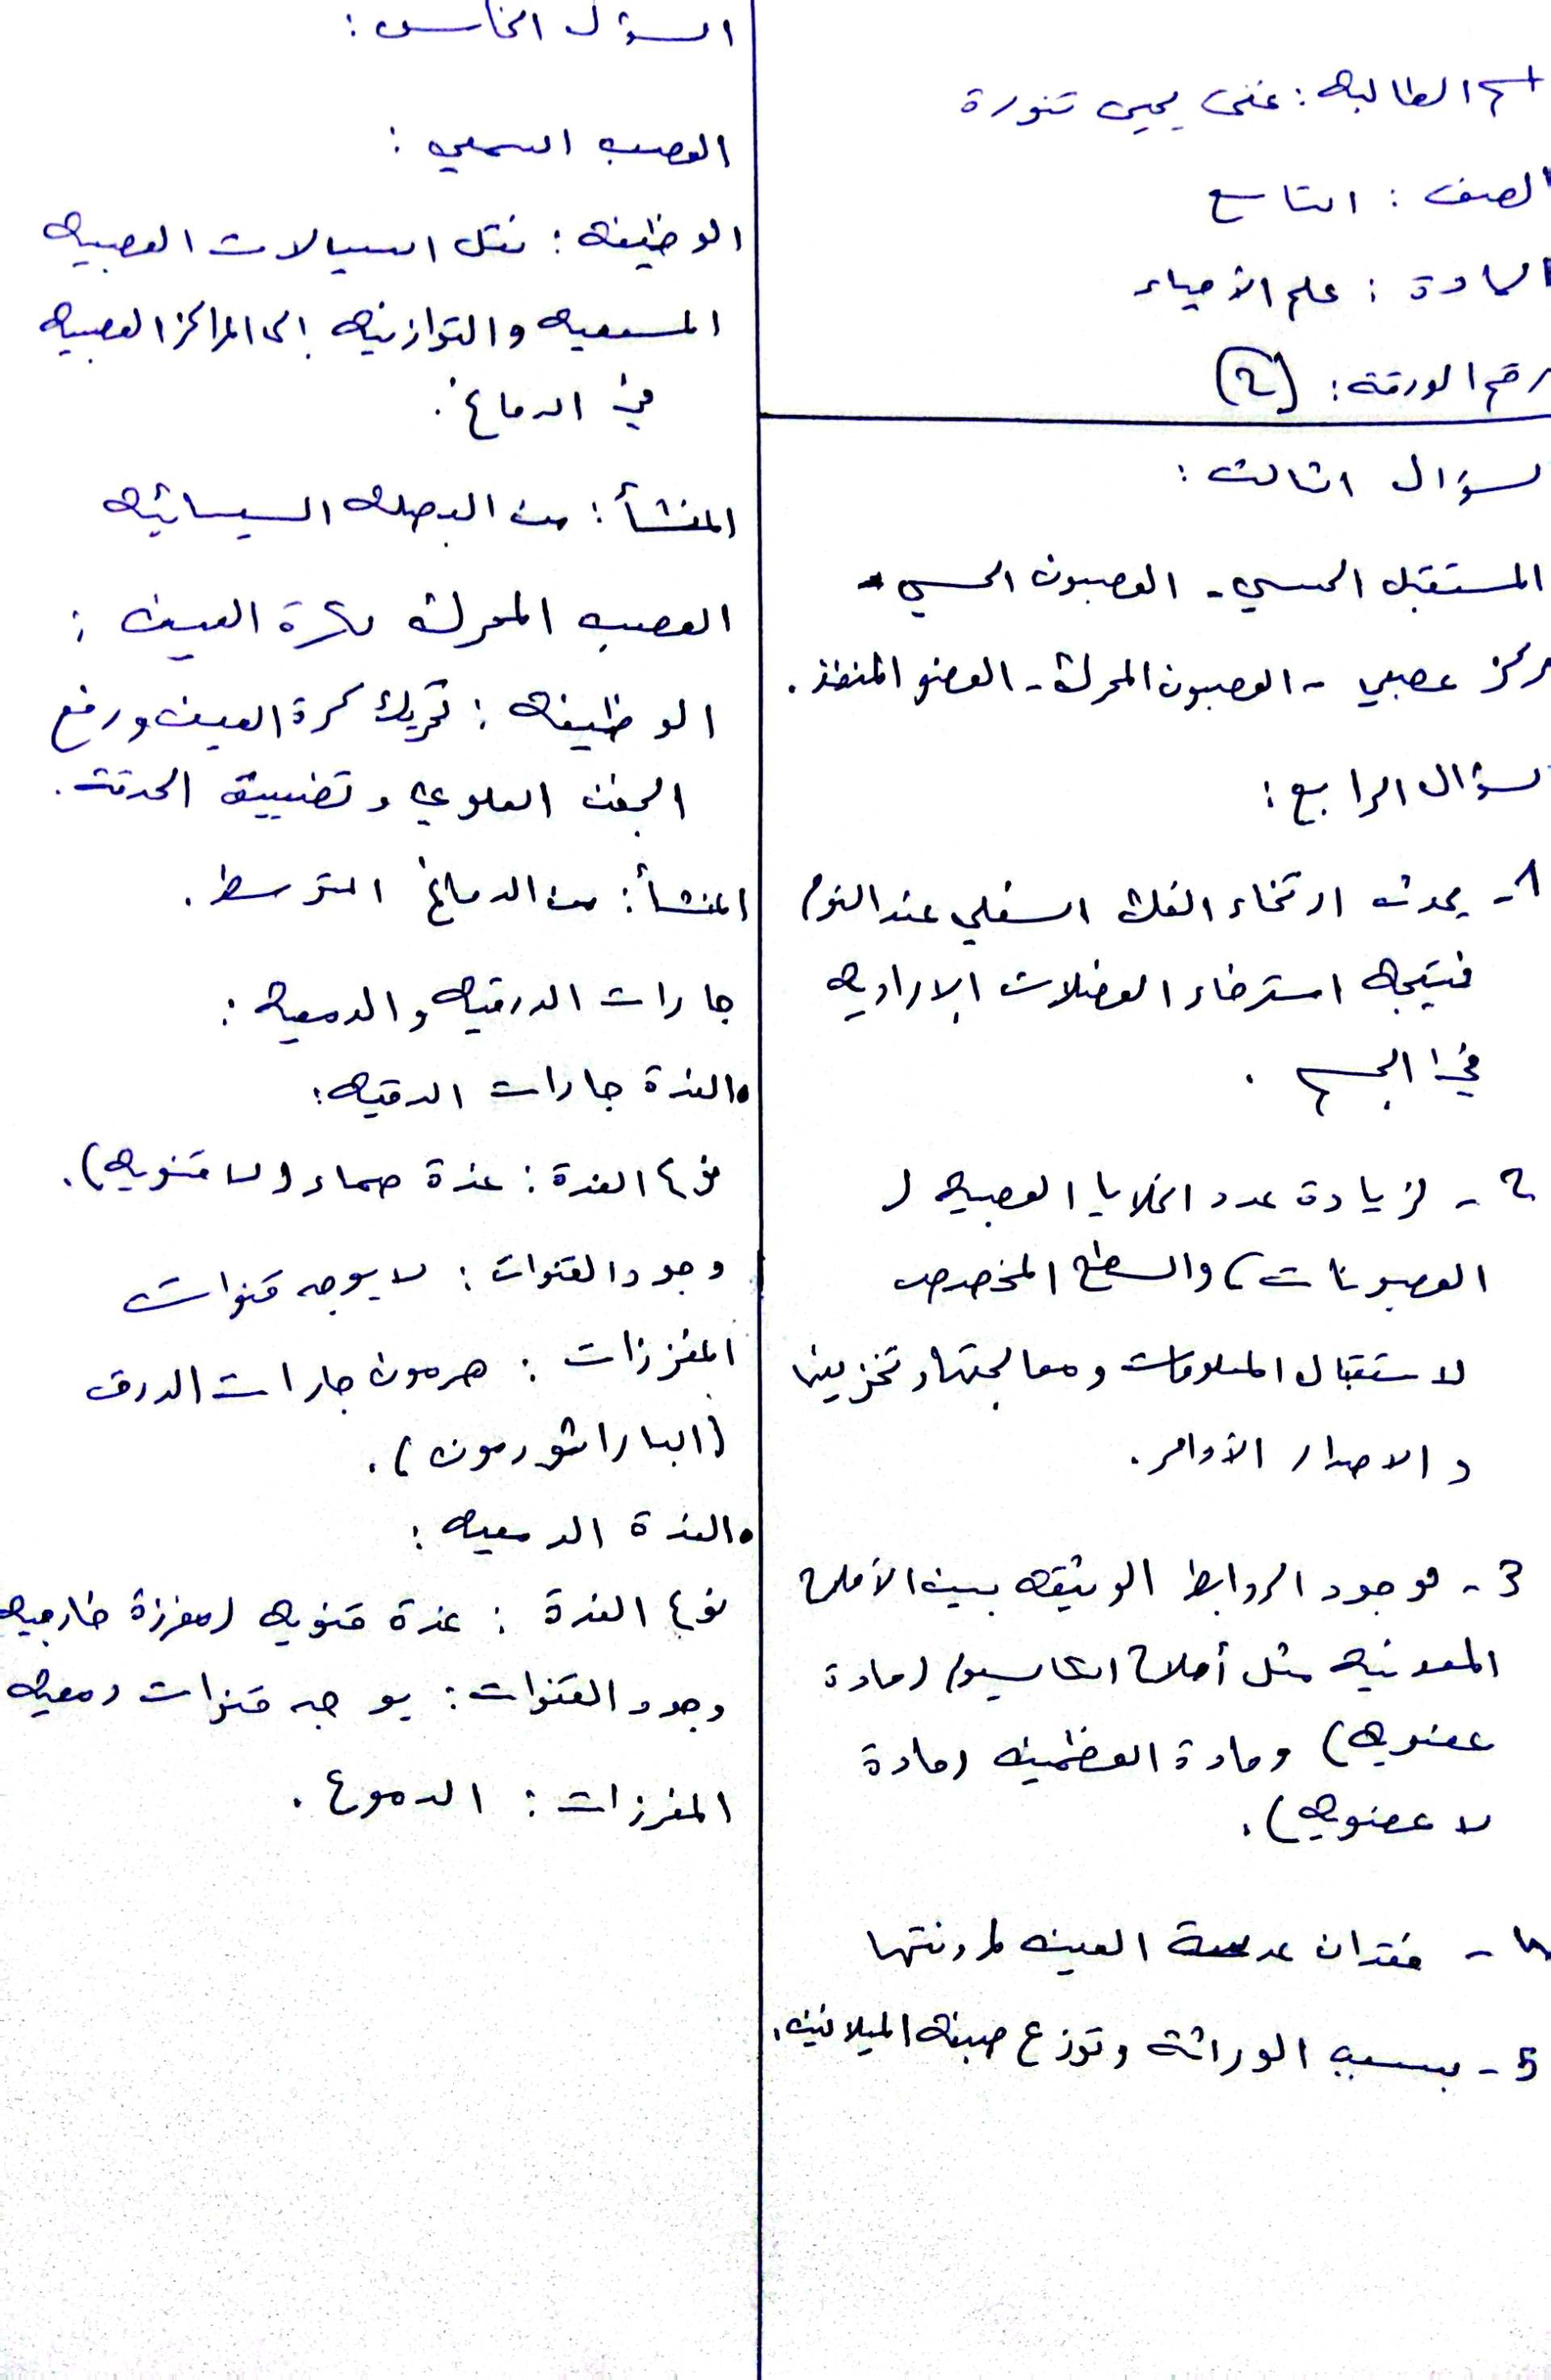 اسم الطالبه : غنى يحيى تنورة
الصف : التاسع
المادة : علم الأحياء
رقم الورقة : (2)
لسؤال الثالث :
المستقبل الحسي - العصبون الحسي -
مركز عصبي - العصبون المحرك - العضو المنفذ .
لسؤال الرابع :
1- يحدث ارتخاء الفك السفلي عند النوم
نتيجه استرخاء العضلات الإراديه
في الجسم .
2 - لزيادة عدد الخلايا العصبيه (
العصبونات) والسطح المخصص
لاستقبال المعلومات ومعالجتها وتخزينها
و الاصدار الأوامر .
3 - لوجود الروابط الوثيقه بين الأملاح
المعدنيه مثل أملاح الكالسيوم (مادة
عضويه) ومادة العظمين (مادة
لا عضويه) .
4 - فقدان عدسة العين لمرونتها
5 - بسبب الوراثة وتوزع صبغه الميلانين .
السؤال الخامس :
العصب السمعي :
الوظيفه : نقل السيالات العصبيه
المسمعيه والتوازنيه إلى المراكز العصبيه
في الدماغ .
المنشأ : من البصله السيسائيه
العصب المحرك لكرة العين :
الوظيفه : تحريك كرة العين ورفع
الجفن العلوي وتضييق الحدقة .
المنشأ : من الدماغ المتوسط .
جارات الدرقيه والدمعيه :
• الغدة جارات الدرقيه :
نوع الغدة : غدة صماء (لا قنويه) .
وجود القنوات : لا يوجد قنوات
المفرزات : هرمون جارات الدرق
(الباراثورمون) .
• الغدة الدمعيه :
نوع الغدة : غدة قنويه (مفرزة خارجيه
وجود القنوات : يوجد قنوات دمعيه
المفرزات : الدموع .